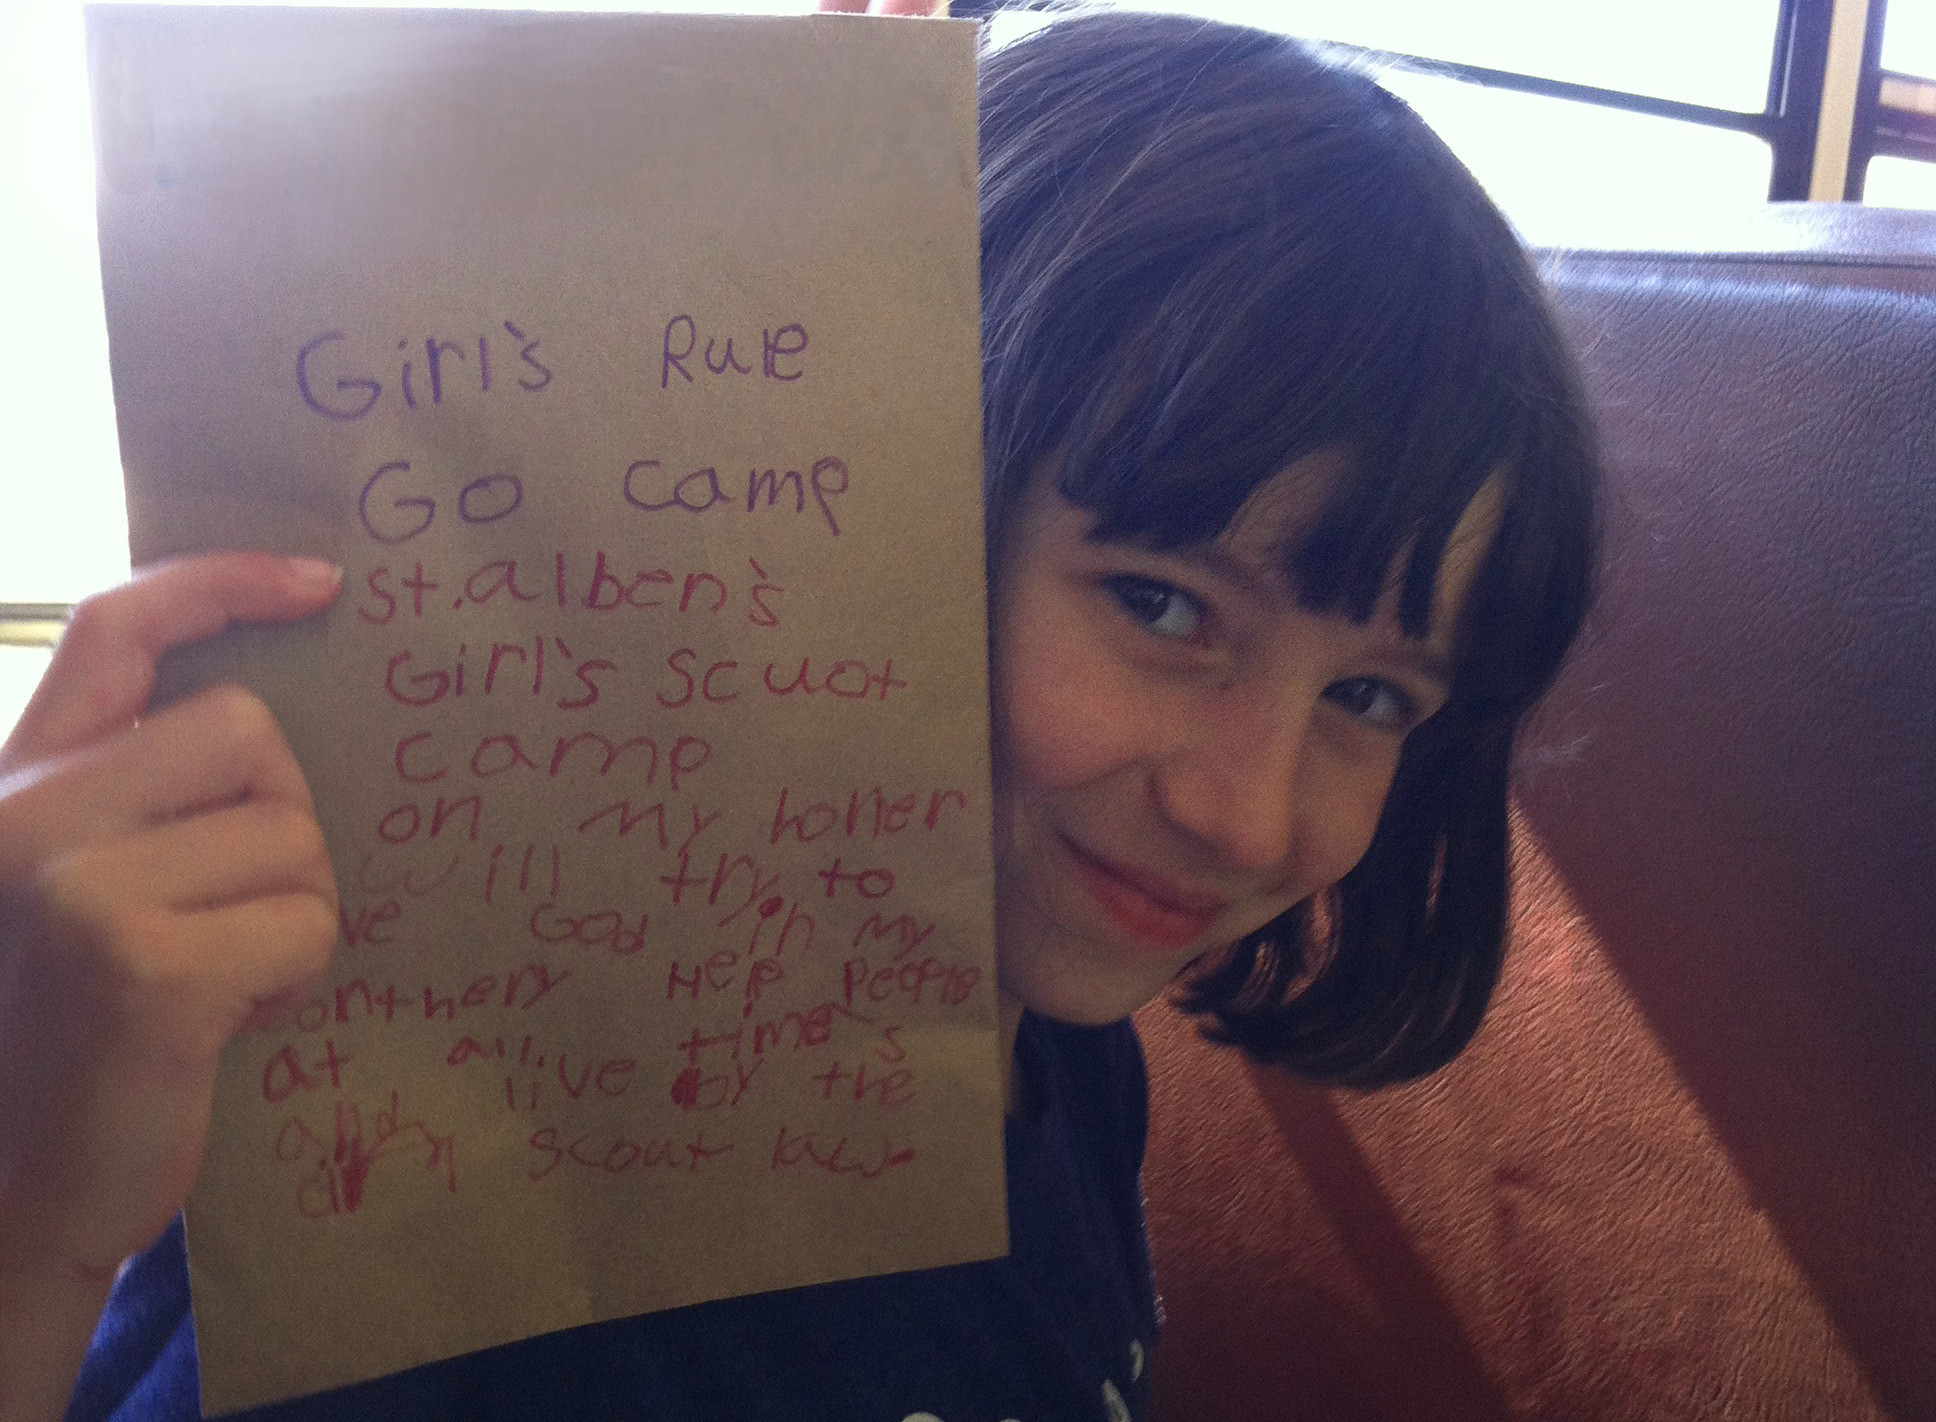 Girl's Rule
Go camp
st.alben's
Girl's scuot
camp
on my honer
will try to
ve God in my
contnery Help people
at all time's
and live by the
scout law.